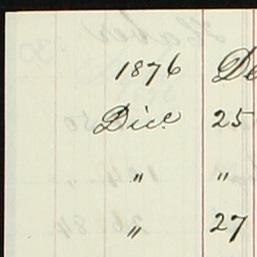 1876 De
Dice 25
" "
" 27